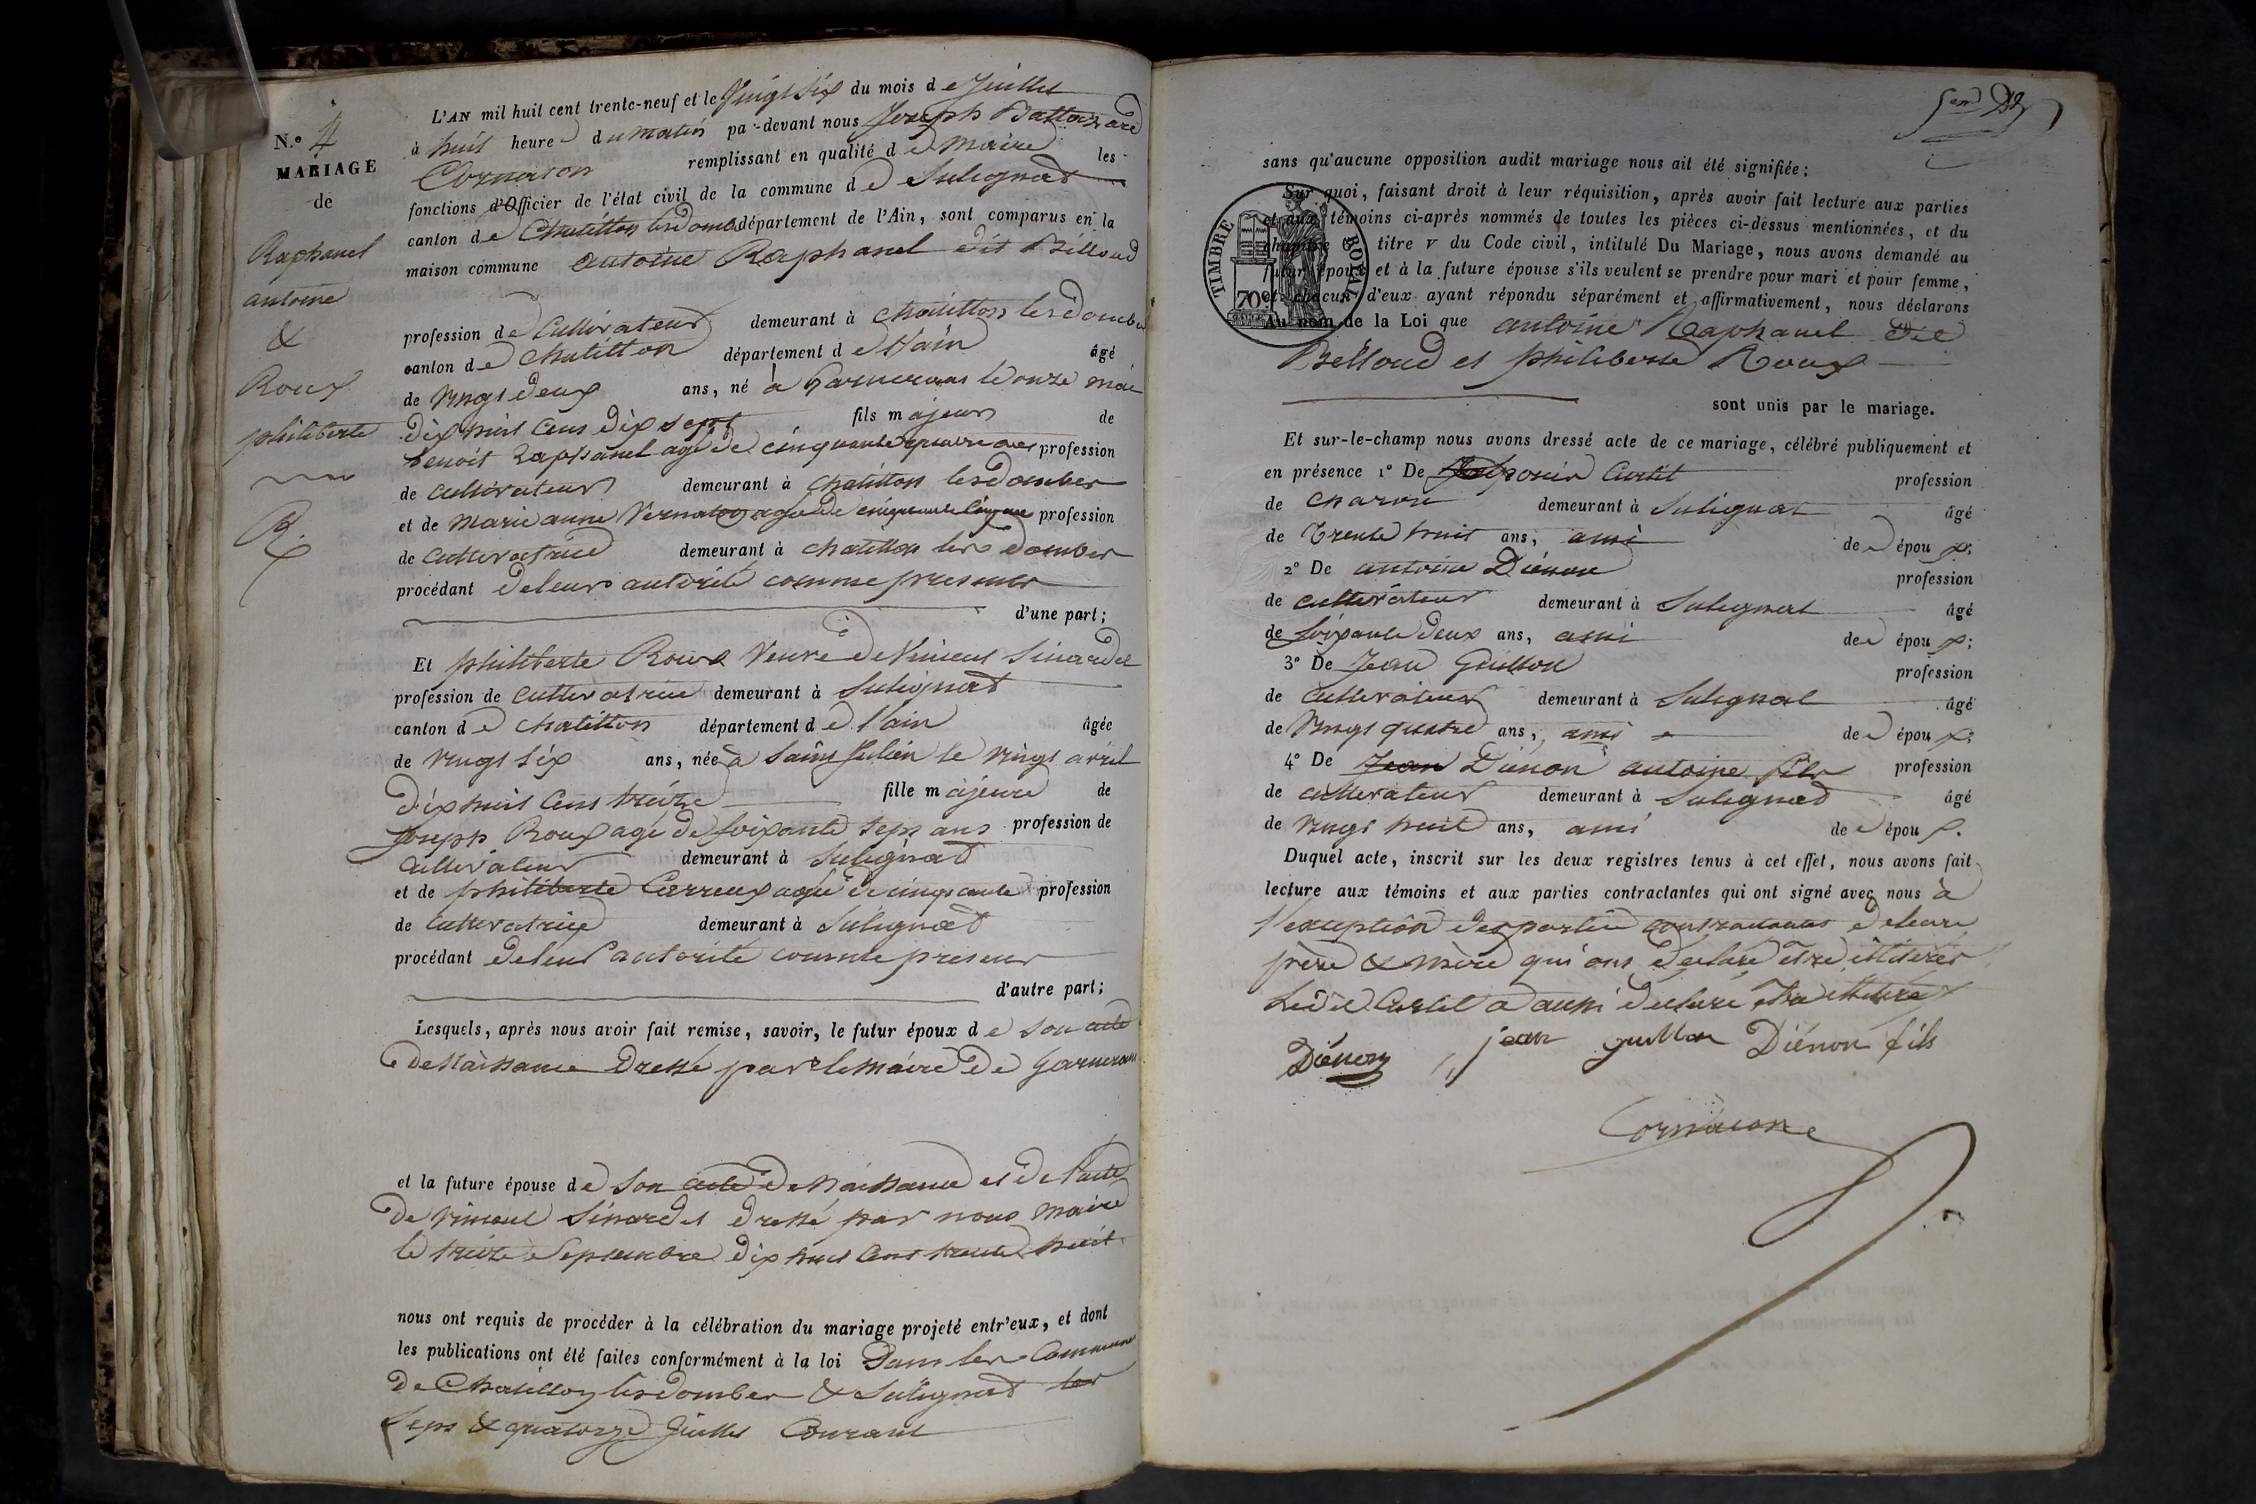 N.o 4
MARIAGE
de
Raphanel
antoine
&
Roux
philiberte
L'AN mil huit cent trente-neuf et le Vingt six du mois de Juillet
à huit heures du matin par-devant nous Joseph Baltazard
Cornaron remplissant en qualité de Maire les
fonctions d'Officier de l'état civil de la commune de Sulignat
canton de Chatillon les dombes département de l'Ain, sont comparus en la
maison commune antoine Raphanel dit Billoud
profession de Cultivateur demeurant à Chatillon les dombes
canton de Chatillon département de l'ain âgé
de vingt deux ans, né à Garnerans le onze mai
dix huit cent dix sept fils majeur de
Benoit Raphanel agé de cinquante quatre ans profession
de cultivateur demeurant à Chatillon les dombes
et de Marie anne agée de cinquante cinq ans profession
de cultivatrice demeurant à chatillon les dombes
procédant de leurs autorité comme presents
d'une part;
Et philiberte Roux Veuve de Vincent Sinardet
profession de cultivatrice demeurant à Sulignat
canton de chatillon département de l'ain âgée
de vingt six ans, née à Saint Julien le vingt avril
dix huit cent treize fille majeure de
Joseph Roux agé de soixante sept ans profession de
cultivateur demeurant à Sulignat
et de philiberte agée de cinquante profession
de cultivatrice demeurant à Sulignat
procédant de leur autorité comme presents
d'autre part;
Lesquels, après nous avoir fait remise, savoir, le futur époux de son acte
de Naissance Dressé par le Maire De Garnerans
et la future épouse de son acte de Naissance et de l'acte
de vincent Sinardet dressé par nous Maire
le treize Septembre dix huit cent trente huit
nous ont requis de procéder à la célébration du mariage projeté entr'eux, et dont
les publications ont été faites conformément à la loi Dans les Communes
de Chatillon les dombes & Sulignat les
sept & quatorze Juillet Courant
sans qu'aucune opposition audit mariage nous ait été signifiée;
Sur quoi, faisant droit à leur réquisition, après avoir fait lecture aux parties
et aux témoins ci-après nommés de toutes les pièces ci-dessus mentionnées, et du
chapitre 6, titre v du Code civil, intitulé Du Mariage, nous avons demandé au
futur époux et à la future épouse s'ils veulent se prendre pour mari et pour femme,
et chacun d'eux ayant répondu séparément et affirmativement, nous déclarons
Au nom de la Loi que antoine Raphanel dit
Belloud et philiberte Roux
TIMBRE ROYAL
70c
sont unis par le mariage.
Et sur-le-champ nous avons dressé acte de ce mariage, célébré publiquement et
en présence 1° De Curtil profession
de charron demeurant à Sulignat âgé
de Trente huit ans, ami des époux;
2° De antoine Diénon profession
de cultivateur demeurant à Sulignat âgé
de soixante deux ans, ami des époux;
3° De Jean Guillon profession
de cultivateur demeurant à Sulignat âgé
de Vingt quatre ans, ami des époux;
4° De Jean Diénon antoine fils profession
de cultivateur demeurant à Sulignat âgé
de vingt huit ans, ami des époux.
Duquel acte, inscrit sur les deux registres tenus à cet effet, nous avons fait
lecture aux témoins et aux parties contractantes qui ont signé avec nous à
l'exception des parties contractantes de leurs
père & mère qui ont declaré etre illitérés
Ledit Curtil a aussi declaré etre illitéré
Diénon jean guillon Diénon fils
Cornaron